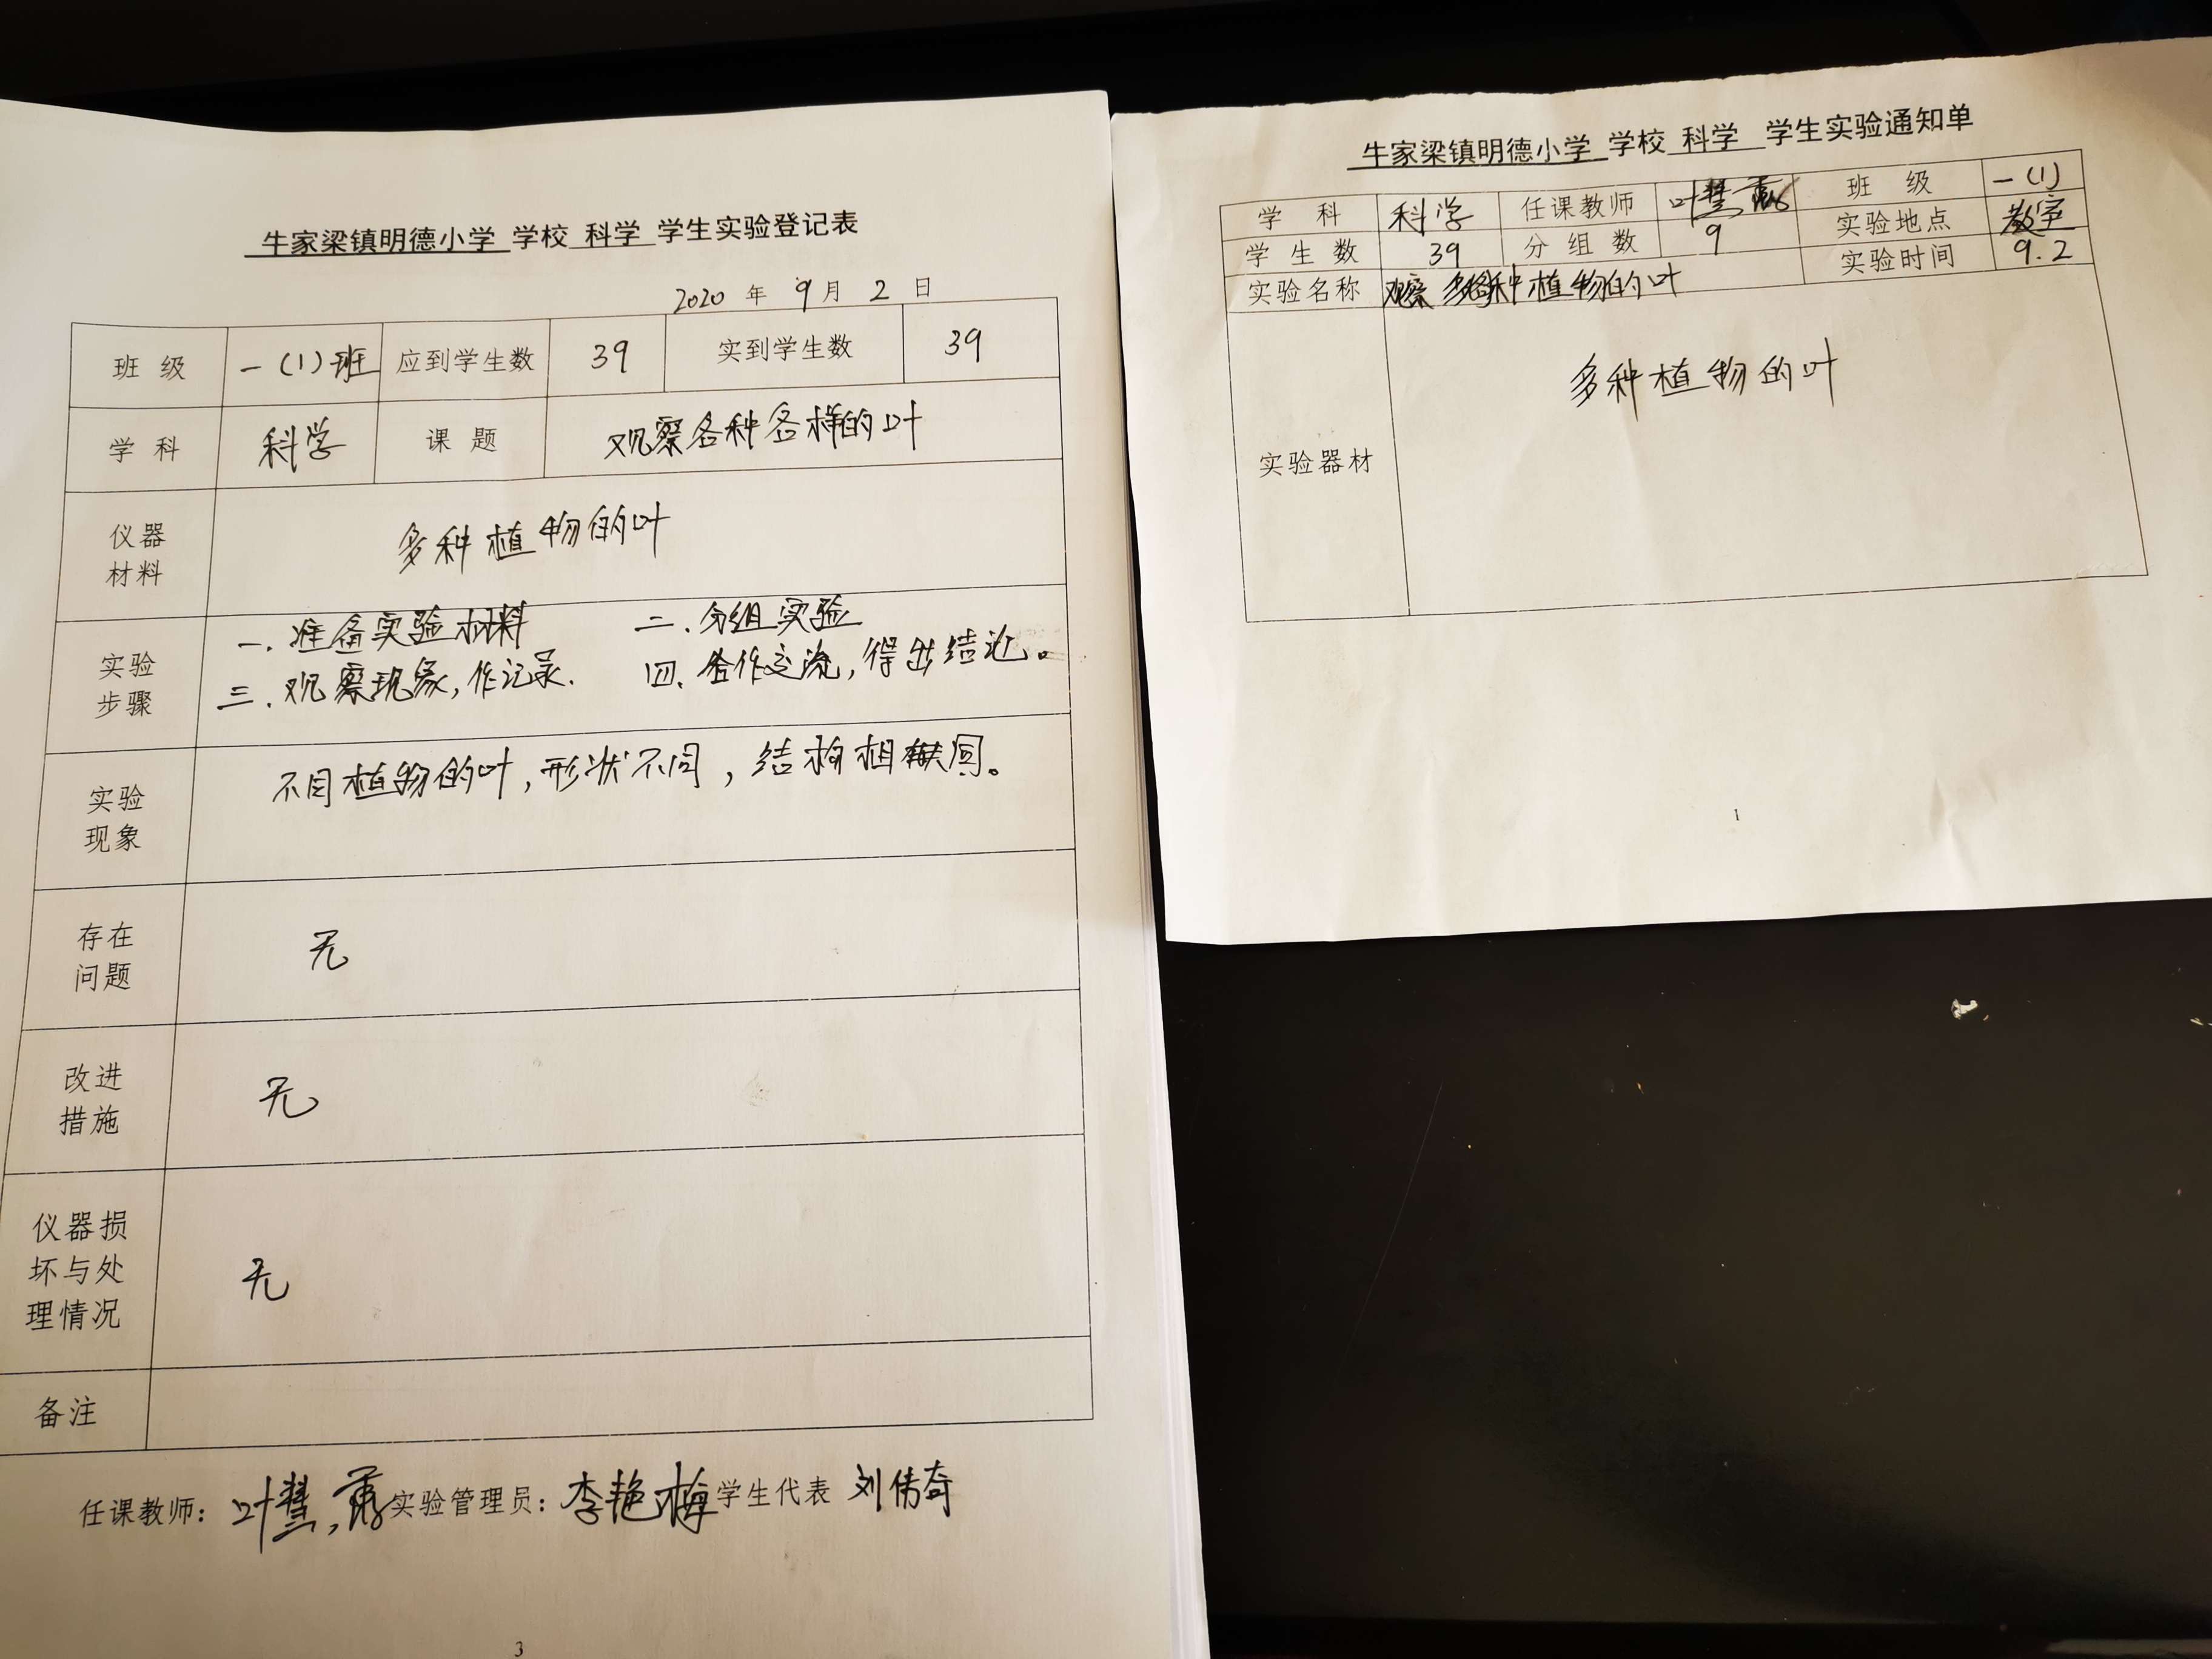 牛家梁镇明德小学 学校 科学 学生实验登记表
2020 年 9 月 2 日
班 级 一(1)班 应到学生数 39 实到学生数 39
学 科 科学 课 题 观察各种各样的叶
仪器材料 多种植物的叶
实验步骤
一.准备实验材料 二.分组实验
三.观察现象,作记录. 四.合作交流,得出结论。
实验现象 不同植物的叶,形状不同,结构相同。
存在问题 无
改进措施 无
仪器损坏与处理情况 无
备注
任课教师: 叶慧 实验管理员: 李艳梅 学生代表 刘伟奇
3
牛家梁镇明德小学 学校 科学 学生实验通知单
学 科 科学 任课教师 叶慧 班 级 一(1)
学 生 数 39 分 组 数 9 实验地点 教室
实验名称 观察多种植物的叶 实验时间 9.2
实验器材 多种植物的叶
1